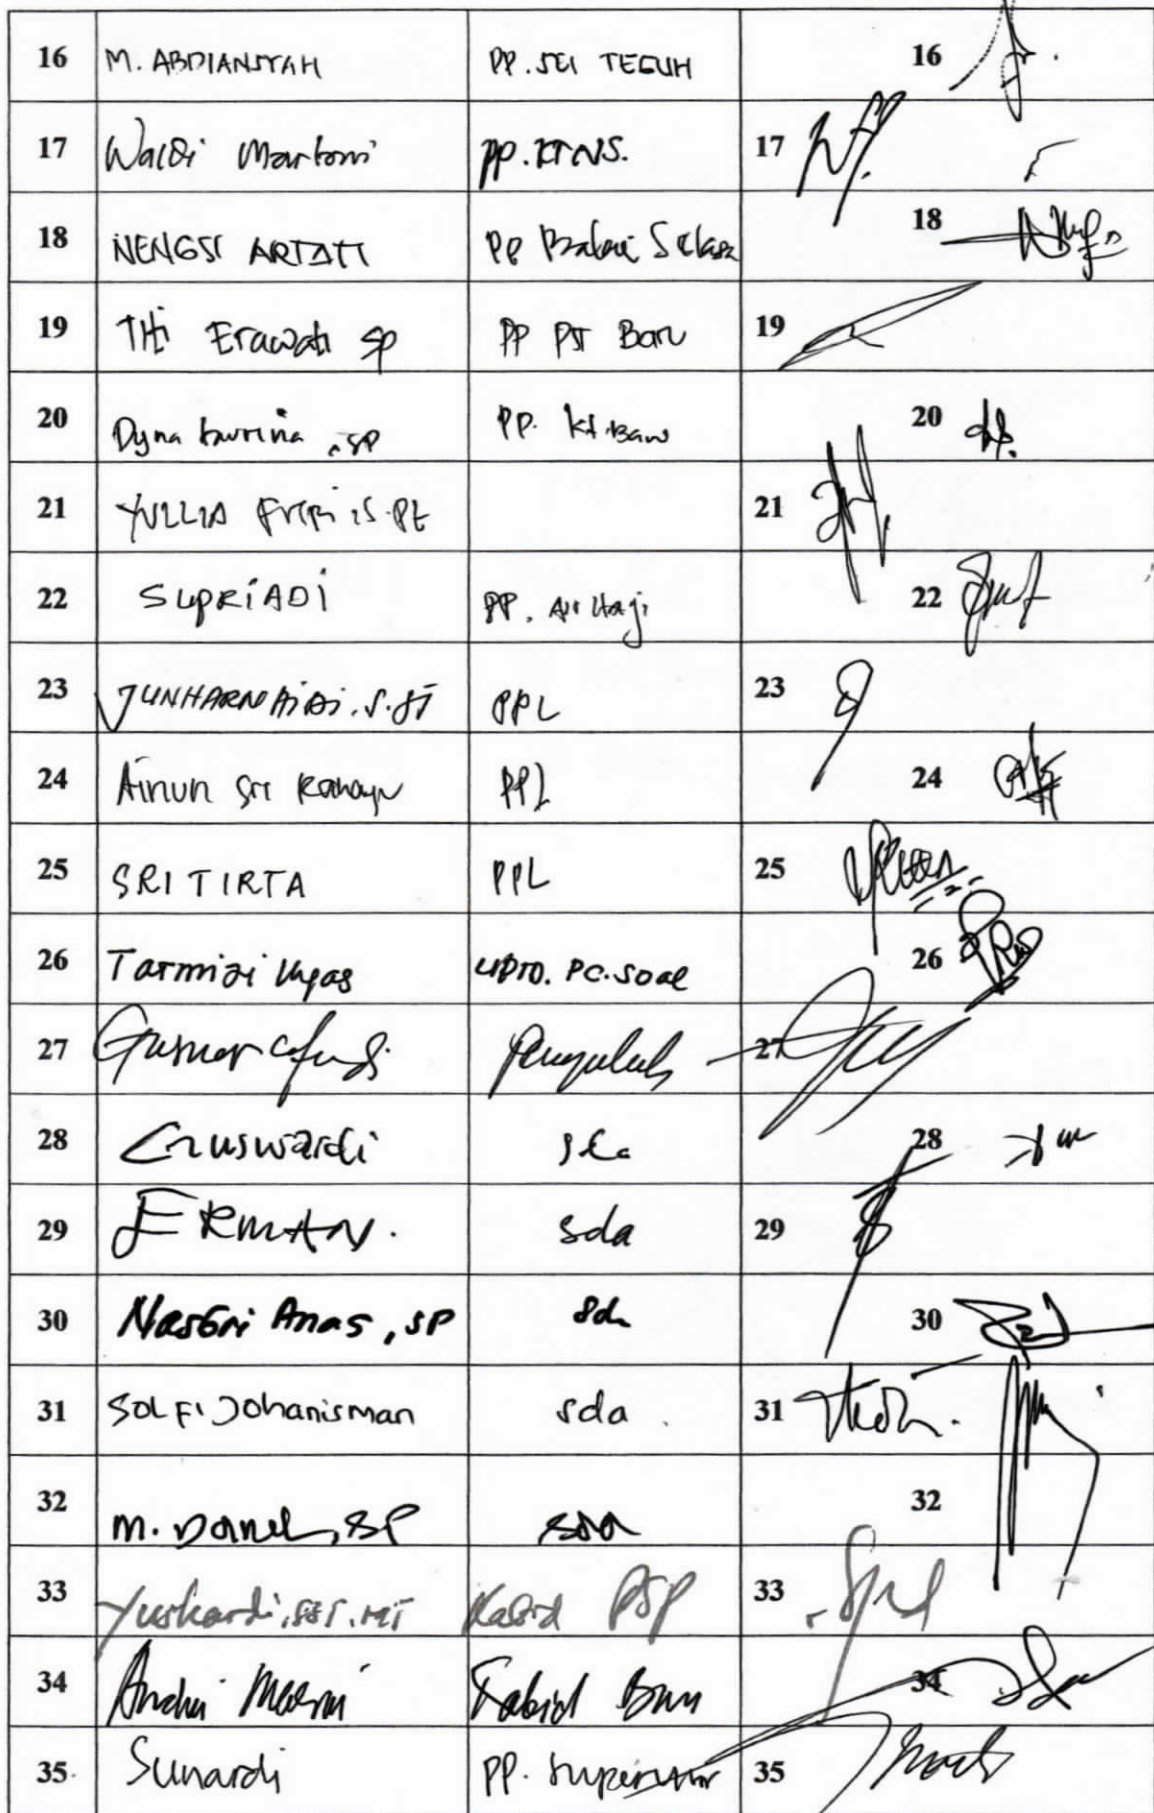 16 M. ABDIANSYAH PP. SEI TEGUH 16
17 Waldi Martoni PP. KTNS. 17
18 NENGSI ARTATI PP Balai Selasa 18
19 Titi Erawati SP PP PSR Baru 19
20 Dyna ,SP PP. Kt. Baru 20
21 YULLIA S.Pt 21
22 SUPRIADI PP. Air Haji 22
23 JUNHARNAIDI. S.ST PPL 23
24 Ainun Sri Rahayu PPL 24
25 SRI TIRTA PPL 25
26 Tarmizi UPTD. PC. Soal 26
27 Gusner Penyuluh 27
28 Guswardi sda 28
29 ERMAN. sda 29
30 Nasbri Anas, SP sda 30
31 SOLFI Johanisman sda 31
32 M. Danel, SP sda 32
33 Yuskardi. SST. MT Kabid PSP 33
34 Andri Kabid 34
35. Sunardi PP. 35